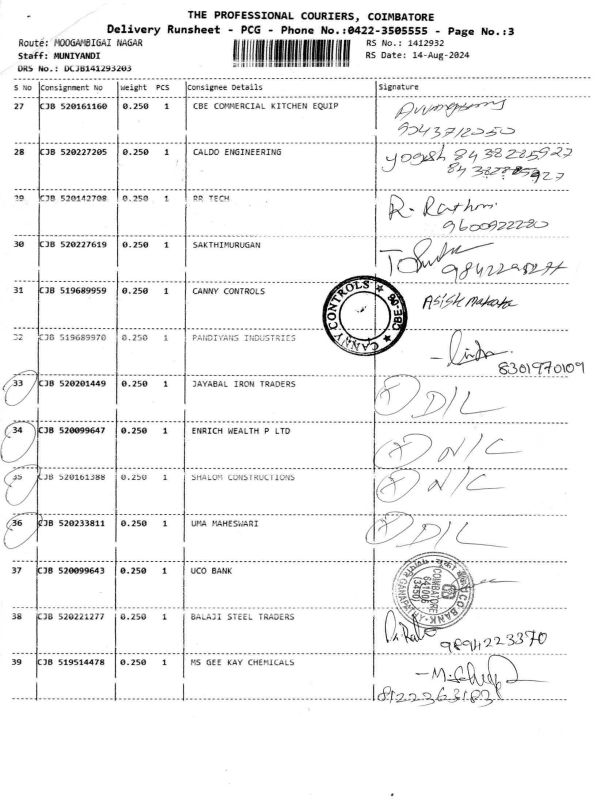 THE PROFESSIONAL COURIERS, COIMBATORE
Delivery Runsheet - PCG - Phone No.:0422-3505555 - Page No.:3
Route: MOOGAMBIGAI NAGAR RS No.: 1412932
Staff: MUNIYANDI RS Date: 14-Aug-2024
DRS No.: DCJB141293203
S No Consignment No Weight PCS Consignee Details Signature
27 CJB 520161160 0.250 1 CBE COMMERCIAL KITCHEN EQUIP
9043712050
28 CJB 520227205 0.250 1 CALDO ENGINEERING yogesh 8438285927
29 CJB 520142708 0.250 1 RR TECH R. Rathni
9600922220
30 CJB 520227619 0.250 1 SAKTHIMURUGAN
31 CJB 519689959 0.250 1 CANNY CONTROLS CANNY CONTROLS ★ CBE-06 ★
32 CJB 519689970 0.250 1 PANDIYANS INDUSTRIES
8301970109
33 CJB 520201449 0.250 1 JAYABAL IRON TRADERS D/L
34 CJB 520099647 0.250 1 ENRICH WEALTH P LTD N/C
35 CJB 520161388 0.250 1 SHALOM CONSTRUCTIONS N/C
36 CJB 520233811 0.250 1 UMA MAHESWARI D/L
37 CJB 520099643 0.250 1 UCO BANK UCO BANK COIMBATORE 641006 GANAPATHY
38 CJB 520221277 0.250 1 BALAJI STEEL TRADERS
9894223370
39 CJB 519514478 0.250 1 MS GEE KAY CHEMICALS
8122363183